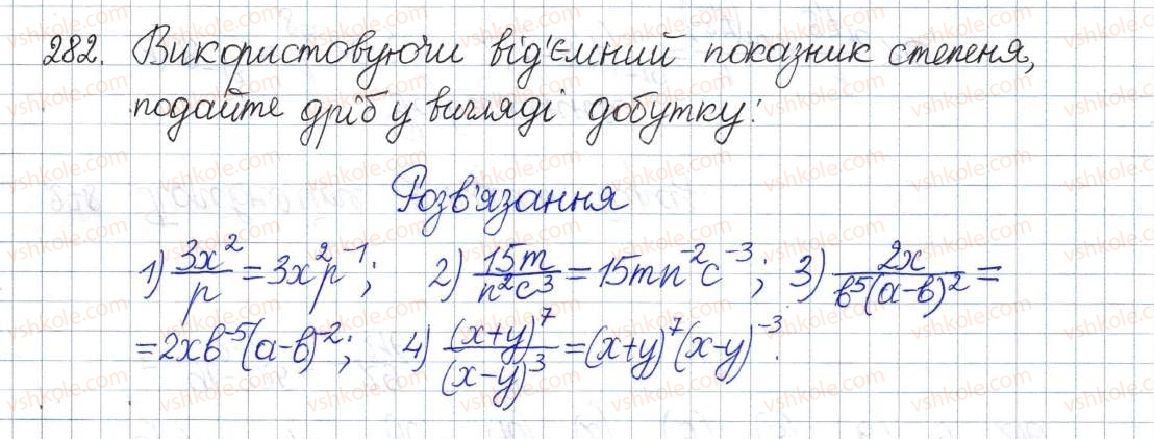 282. Використовуючи від'ємний показник степеня,
подайте дріб у вигляді добутку:
Розв'язання
1) 3x²/p = 3x²p⁻¹; 2) 15m/n²c³ = 15mn⁻²c⁻³; 3) 2x/в⁵(a-в)² =
= 2xв⁻⁵(a-в)⁻²; 4) (x+y)⁷/(x-y)³ = (x+y)⁷(x-y)⁻³.